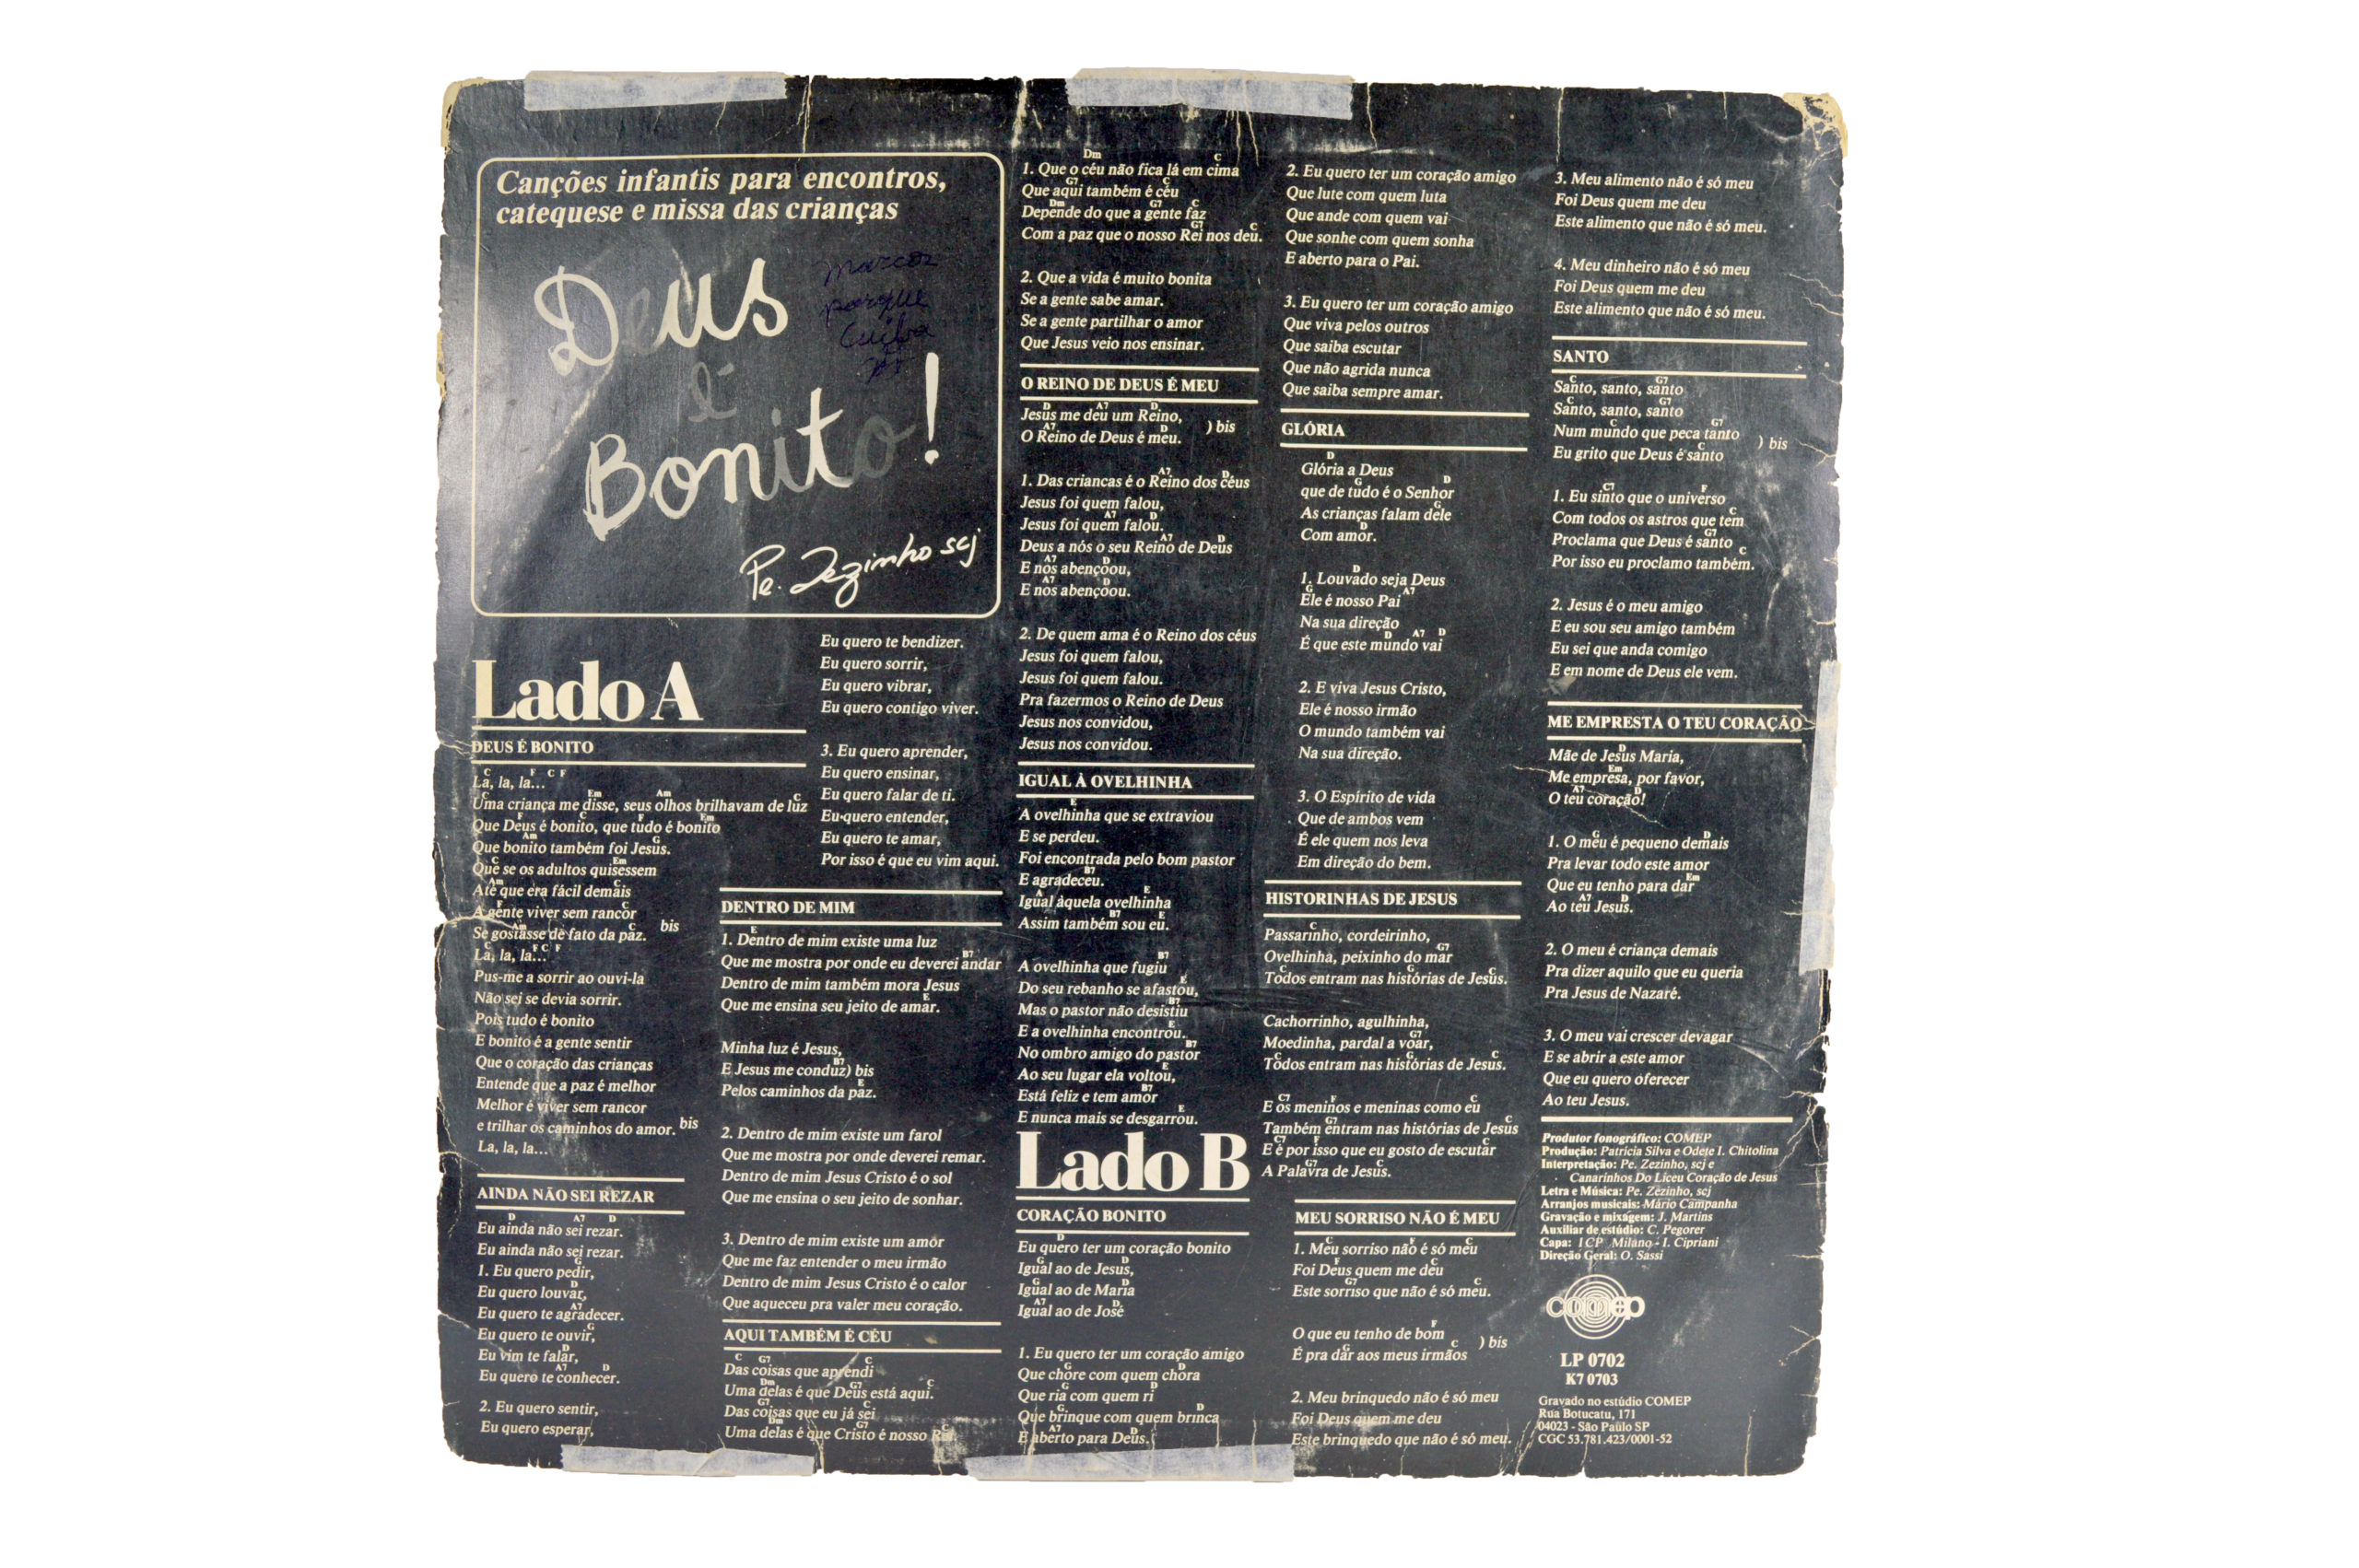 Canções infantis para encontros,
catequese e missa das crianças
Deus
é
Bonito!
Pe. Zezinho scj
Marcos
porque
Lado A
DEUS É BONITO
C F C F
La, la, la...
C Em Am C
Uma criança me disse, seus olhos brilhavam de luz
F C F Em
Que Deus é bonito, que tudo é bonito
Am G
Que bonito também foi Jesus.
C Em
Que se os adultos quisessem
Am C
Até que era fácil demais
F C
A gente viver sem rancor
Am C
Se gostasse de fato da paz. bis
C F C F
La, la, la...
Pus-me a sorrir ao ouvi-la
Não sei se devia sorrir.
Pois tudo é bonito
E bonito é a gente sentir
Que o coração das crianças
Entende que a paz é melhor
Melhor é viver sem rancor
e trilhar os caminhos do amor. bis
La, la, la...
AINDA NÃO SEI REZAR
D A7 D
Eu ainda não sei rezar.
Eu ainda não sei rezar.
G
1. Eu quero pedir,
D
Eu quero louvar,
A7
Eu quero te agradecer.
G
Eu quero te ouvir,
D
Eu vim te falar,
A7 D
Eu quero te conhecer.
2. Eu quero sentir,
Eu quero esperar,
Eu quero te bendizer.
Eu quero sorrir,
Eu quero vibrar,
Eu quero contigo viver.
3. Eu quero aprender,
Eu quero ensinar,
Eu quero falar de ti.
Eu quero entender,
Eu quero te amar,
Por isso é que eu vim aqui.
DENTRO DE MIM
E
1. Dentro de mim existe uma luz
B7
Que me mostra por onde eu deverei andar
Dentro de mim também mora Jesus
E
Que me ensina seu jeito de amar.
Minha luz é Jesus,
B7
E Jesus me conduz) bis
E
Pelos caminhos da paz.
2. Dentro de mim existe um farol
Que me mostra por onde deverei remar.
Dentro de mim Jesus Cristo é o sol
Que me ensina o seu jeito de sonhar.
3. Dentro de mim existe um amor
Que me faz entender o meu irmão
Dentro de mim Jesus Cristo é o calor
Que aqueceu pra valer meu coração.
AQUI TAMBÉM É CÉU
C G7 C
Das coisas que aprendi
Dm G7 C
Uma delas é que Deus está aqui.
G7 C
Das coisas que eu já sei
Dm G7 C
Uma delas é que Cristo é nosso Rei.
Dm C
1. Que o céu não fica lá em cima
G7 C
Que aqui também é céu
Dm G7 C
Depende do que a gente faz
G7 C
Com a paz que o nosso Rei nos deu.
2. Que a vida é muito bonita
Se a gente sabe amar.
Se a gente partilhar o amor
Que Jesus veio nos ensinar.
O REINO DE DEUS É MEU
D A7 D
Jesus me deu um Reino,
A7 D
O Reino de Deus é meu. ) bis
A7 D
1. Das criancas é o Reino dos céus
Jesus foi quem falou,
A7 D
Jesus foi quem falou.
A7 D
Deus a nós o seu Reino de Deus
A7 D
E nos abençoou,
A7 D
E nos abençoou.
2. De quem ama é o Reino dos céus
Jesus foi quem falou,
Jesus foi quem falou.
Pra fazermos o Reino de Deus
Jesus nos convidou,
Jesus nos convidou.
IGUAL À OVELHINHA
E
A ovelhinha que se extraviou
E se perdeu.
Foi encontrada pelo bom pastor
B7
E agradeceu.
A E
Igual àquela ovelhinha
B7 E
Assim também sou eu.
B7
A ovelhinha que fugiu
E
Do seu rebanho se afastou,
B7
Mas o pastor não desistiu
E
E a ovelhinha encontrou.
B7
No ombro amigo do pastor
E
Ao seu lugar ela voltou,
B7
Está feliz e tem amor
E
E nunca mais se desgarrou.
Lado B
CORAÇÃO BONITO
D
Eu quero ter um coração bonito
G D
Igual ao de Jesus,
G D
Igual ao de Maria
A7 D
Igual ao de José
1. Eu quero ter um coração amigo
G D
Que chore com quem chora
G D
Que ria com quem ri
G D
Que brinque com quem brinca
A7 D
E aberto para Deus.
2. Eu quero ter um coração amigo
Que lute com quem luta
Que ande com quem vai
Que sonhe com quem sonha
E aberto para o Pai.
3. Eu quero ter um coração amigo
Que viva pelos outros
Que saiba escutar
Que não agrida nunca
Que saiba sempre amar.
GLÓRIA
D
Glória a Deus
G D
que de tudo é o Senhor
G
As crianças falam dele
D
Com amor.
D
1. Louvado seja Deus
G A7
Ele é nosso Pai
Na sua direção
D A7 D
É que este mundo vai
2. E viva Jesus Cristo,
Ele é nosso irmão
O mundo também vai
Na sua direção.
3. O Espírito de vida
Que de ambos vem
É ele quem nos leva
Em direção do bem.
HISTORINHAS DE JESUS
C
Passarinho, cordeirinho,
G7
Ovelhinha, peixinho do mar
C G C
Todos entram nas histórias de Jesus.
Cachorrinho, agulhinha,
G7
Moedinha, pardal a voar,
C G C
Todos entram nas histórias de Jesus.
C7 F C
E os meninos e meninas como eu
G7 C
Também entram nas histórias de Jesus
C7 F C
E é por isso que eu gosto de escutar
G7 C
A Palavra de Jesus.
MEU SORRISO NÃO É MEU
C F C
1. Meu sorriso não é só meu
F C
Foi Deus quem me deu
G7 C
Este sorriso que não é só meu.
F
O que eu tenho de bom
G C
É pra dar aos meus irmãos ) bis
2. Meu brinquedo não é só meu
Foi Deus quem me deu
Este brinquedo que não é só meu.
3. Meu alimento não é só meu
Foi Deus quem me deu
Este alimento que não é só meu.
4. Meu dinheiro não é só meu
Foi Deus quem me deu
Este alimento que não é só meu.
SANTO
C G7
Santo, santo, santo
C G7
Santo, santo, santo
C G7
Num mundo que peca tanto
C
Eu grito que Deus é santo ) bis
C7 F
1. Eu sinto que o universo
C
Com todos os astros que tem
G7
Proclama que Deus é santo
C
Por isso eu proclamo também.
2. Jesus é o meu amigo
E eu sou seu amigo também
Eu sei que anda comigo
E em nome de Deus ele vem.
ME EMPRESTA O TEU CORAÇÃO
D
Mãe de Jesus Maria,
Em
Me empresa, por favor,
A7 D
O teu coração!
G D
1. O meu é pequeno demais
Pra levar todo este amor
Em
Que eu tenho para dar
A7 D
Ao teu Jesus.
2. O meu é criança demais
Pra dizer aquilo que eu queria
Pra Jesus de Nazaré.
3. O meu vai crescer devagar
E se abrir a este amor
Que eu quero oferecer
Ao teu Jesus.
Produtor fonográfico: COMEP
Produção: Patrícia Silva e Odete I. Chitolina
Interpretação: Pe. Zezinho, scj e
Canarinhos Do Liceu Coração de Jesus
Letra e Música: Pe. Zezinho, scj
Arranjos musicais: Mário Campanha
Gravação e mixagem: J. Martins
Auxiliar de estúdio: C. Pegorer
Capa: ICP Milano - I. Cipriani
Direção Geral: O. Sassi
comep
LP 0702
K7 0703
Gravado no estúdio COMEP
Rua Botucatu, 171
04023 - São Paulo SP
CGC 53.781.423/0001-52